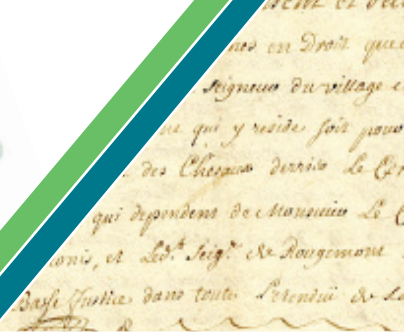 en Droit que
Seigneur du village e
ne qui y reside soit pour
des Chesaux derriere Le
qui dependent de Monsieur Le C
onis, et Led.t Seig.r de Rougemont
Basse Justice dans toute L'etendüe de